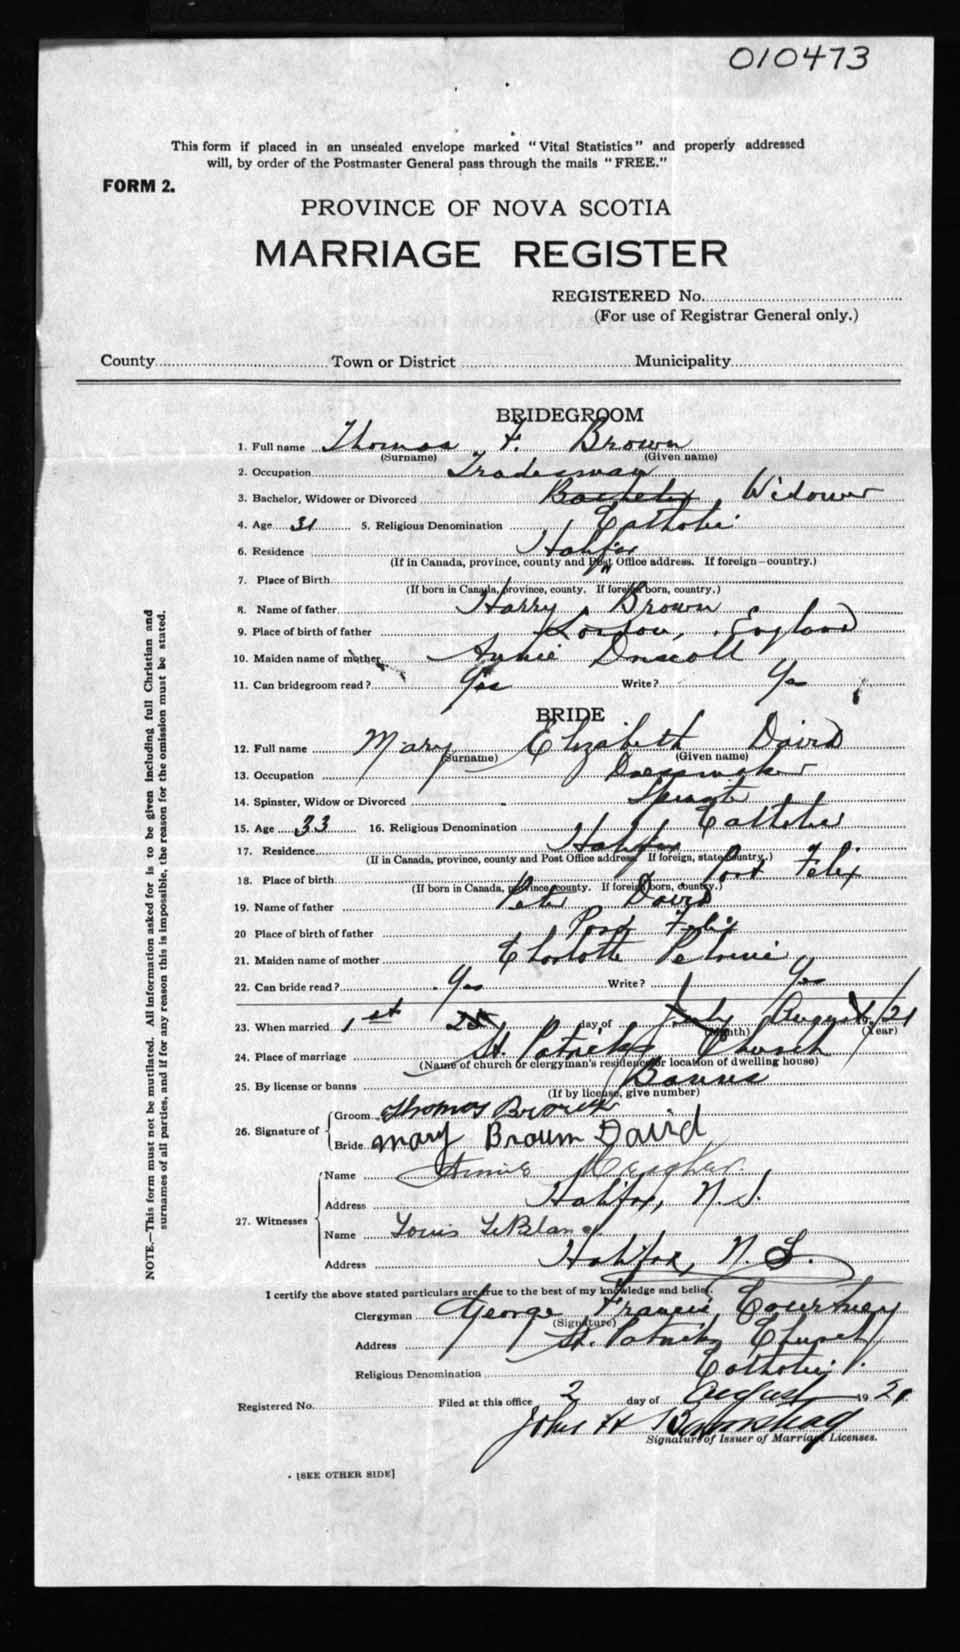 010473
This form if placed in an unsealed envelope marked "Vital Statistics" and properly addressed
will, by order of the Postmaster General pass through the mails "FREE."
FORM 2.
PROVINCE OF NOVA SCOTIA
MARRIAGE REGISTER
REGISTERED No.
(For use of Registrar General only.)
County Town or District Municipality
BRIDEGROOM
1. Full name Thomas F. Brown
(Surname) (Given name)
2. Occupation Tradesman
3. Bachelor, Widower or Divorced Bachelor Widower
4. Age 31 5. Religious Denomination Catholic
6. Residence Halifax
(If in Canada, province, county and Post Office address. If foreign—country.)
7. Place of Birth
(If born in Canada, province, county. If foreign born, country.)
8. Name of father Harry Brown
9. Place of birth of father London, England
10. Maiden name of mother Annie Driscoll
11. Can bridegroom read? Yes Write? Yes
BRIDE
12. Full name Mary Elizabeth David
(Surname) (Given name)
13. Occupation Dressmaker
14. Spinster, Widow or Divorced Spinster
15. Age 33 16. Religious Denomination Catholic
17. Residence Halifax
(If in Canada, province, county and Post Office address. If foreign, state country.)
18. Place of birth Port Felix
(If born in Canada, province, county. If foreign born, country.)
19. Name of father Peter David
20 Place of birth of father Port Felix
21. Maiden name of mother Charlotte Petrie
22. Can bride read? Yes Write? Yes
23. When married 1st 25 day of July August 19/21
(Month) (Year)
24. Place of marriage St. Patrick's Church
(Name of church or clergyman's residence or location of dwelling house)
25. By license or banns Banns
(If by license, give number)
26. Signature of Groom Thomas Brown
Bride Mary Brown David
27. Witnesses Name Annie Meagher
Address Halifax, N.S.
Name Louis LeBlanc
Address Halifax, N.S.
I certify the above stated particulars are true to the best of my knowledge and belief.
Clergyman George Francis Courtney
(Signature)
Address St. Patrick's Church
Religious Denomination Catholic
Registered No. Filed at this office 2 day of August 1921
John H
Signature of Issuer of Marriage Licenses.
[SEE OTHER SIDE]
NOTE.—This form must not be mutilated. All information asked for is to be given including full Christian and
surnames of all parties, and if for any reason this is impossible, the reason for the omission must be stated.